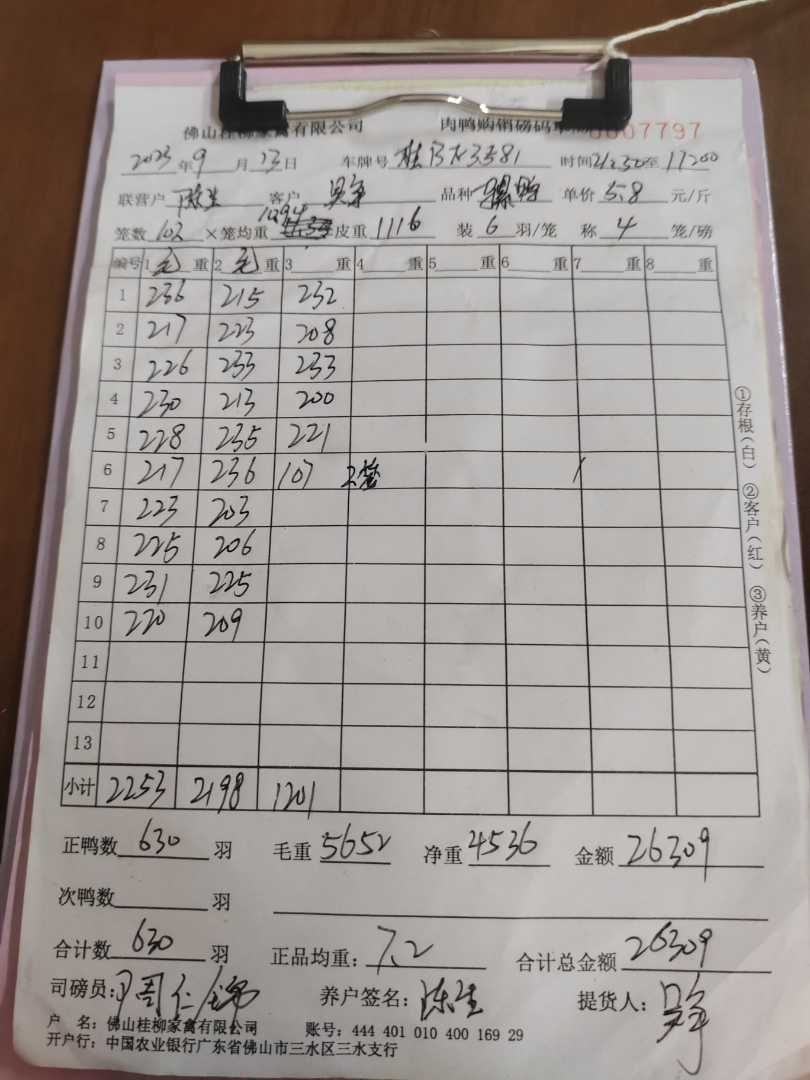 佛山桂柳家禽有限公司 肉鸭购销磅码单 0007797
2023年9月23日 车牌号 桂 3581 时间21:50至17200
联营户 陈生 客户 吴争 品种 单价 5.8 元/斤
笼数 102 ×笼均重 1094 皮重 1116 装 6 羽/笼 称 4 笼/磅
编号 1 毛 重 2 毛 重 3 重 4 重 5 重 6 重 7 重 8 重
1 236 215 232
2 217 223 208
3 226 233 233
4 230 213 200
5 228 235 221
6 217 236 107 2笼
7 223 203
8 225 206
9 231 225
10 220 209
11
12
13
小计 2253 2198 1201
正鸭数 630 羽 毛重 5652 净重 4536 金额 26309
次鸭数 羽
合计数 630 羽 正品均重: 7.2 合计总金额 26309
司磅员: 周仁锦 养户签名: 陈生 提货人: 吴争
户 名: 佛山桂柳家禽有限公司 账号: 444 401 010 400 169 29
开户行: 中国农业银行广东省佛山市三水区三水支行
①存根(白) ②客户(红) ③养户(黄)